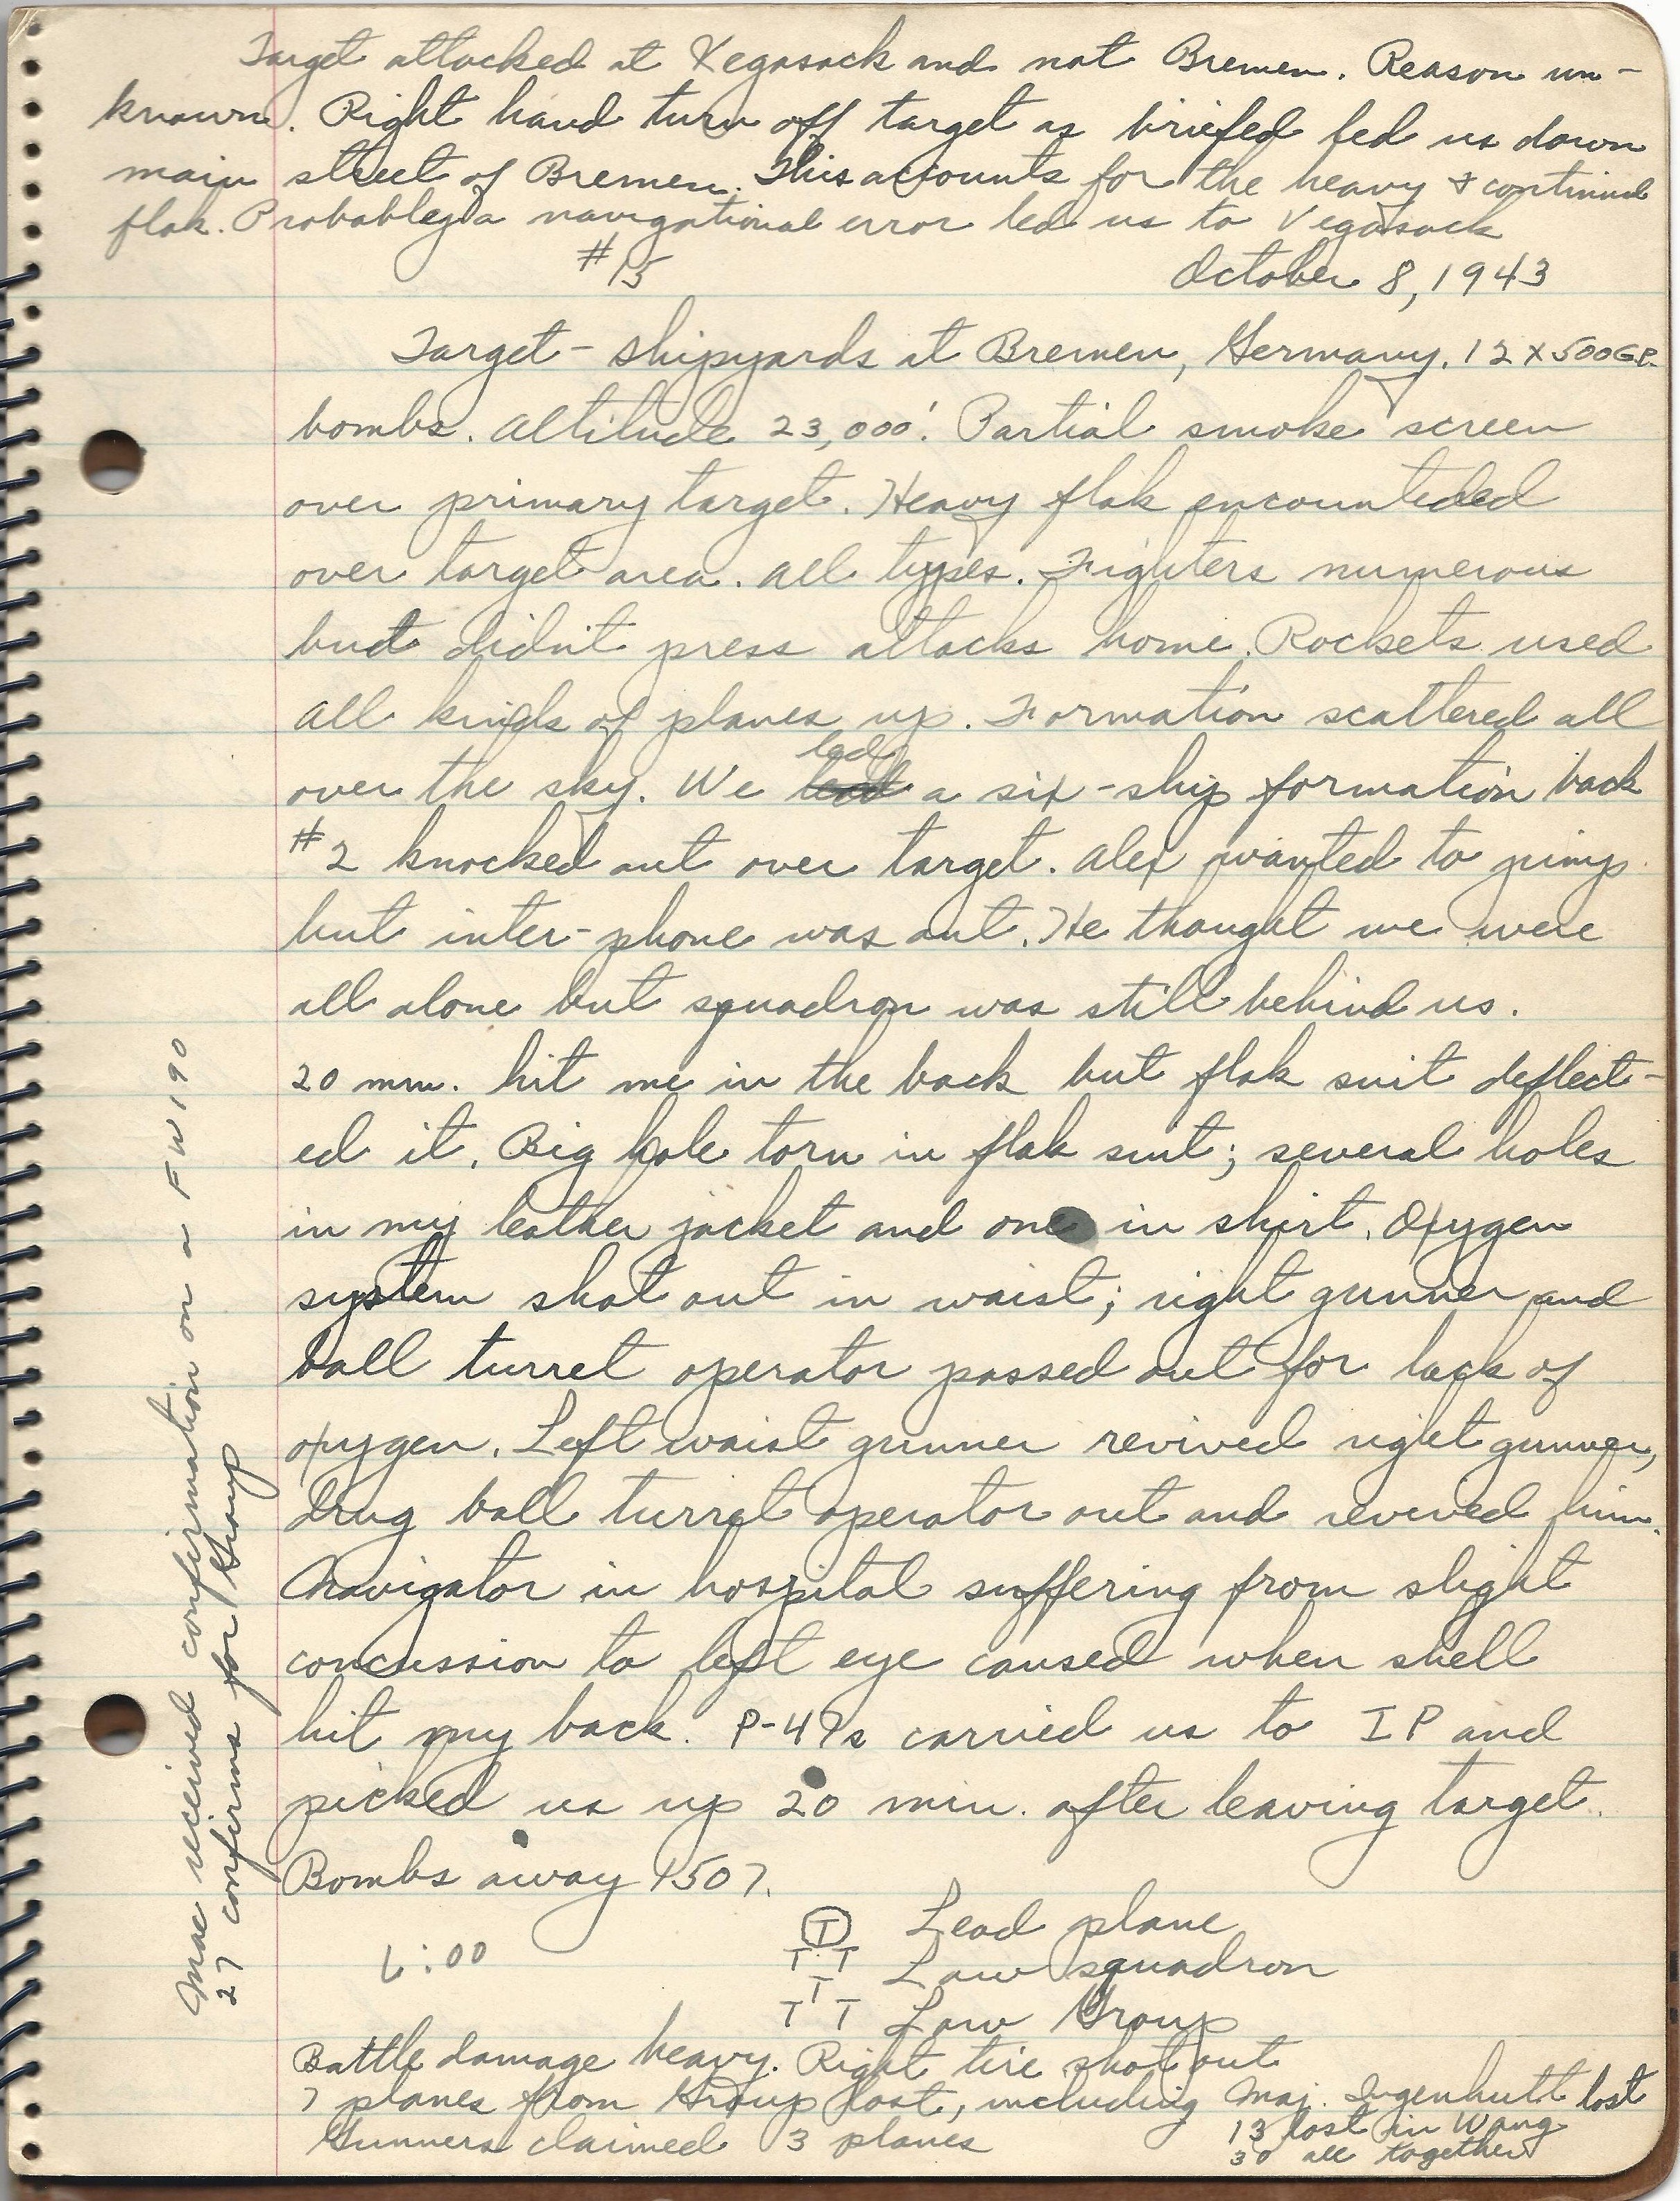 Target attacked at Vegasack and not Bremen. Reason un-
known. Right hand turn off target as briefed led us down
main street of Bremen. This accounts for the heavy & continual
flak. Probably a navigational error led us to Vegasack
#15 October 8, 1943
Target - shipyards at Bremen, Germany. 12 x 500 G.P.
bombs. Altitude 23,000'. Partial smoke screen
over primary target. Heavy flak encounteded
over target area. All types. Fighters numerous
but didn't press attacks home. Rockets used
All kinds of planes up. Formation scattered all
over the sky. We led a six-ship formation back
#2 knocked out over target. Alex wanted to jump
but inter-phone was out. He thought we were
all alone but squadron was still behind us.
20 mm. hit me in the back but flak suit deflect-
ed it. Big hole torn in flak suit; several holes
in my leather jacket and one in shirt. Oxygen
system shot out in waist; right gunner and
ball turret operator passed out for lack of
oxygen. Left waist gunner revived right gunner,
drug ball turret operator out and revived him.
Navigator in hospital suffering from slight
concussion to left eye caused when shell
hit my back. P-47s carried us to IP and
picked us up 20 min. after leaving target.
Bombs away 1507.
T Lead plane
6:00 T T Low squadron
T
T T Low Group
Battle damage heavy. Right tire shot out
7 planes from Group lost, including Maj. Ingenhutt lost
Gunners claimed 3 planes 13 lost in Wang
30 all together
Mac received confirmation on a FW190
27 confirms for Group